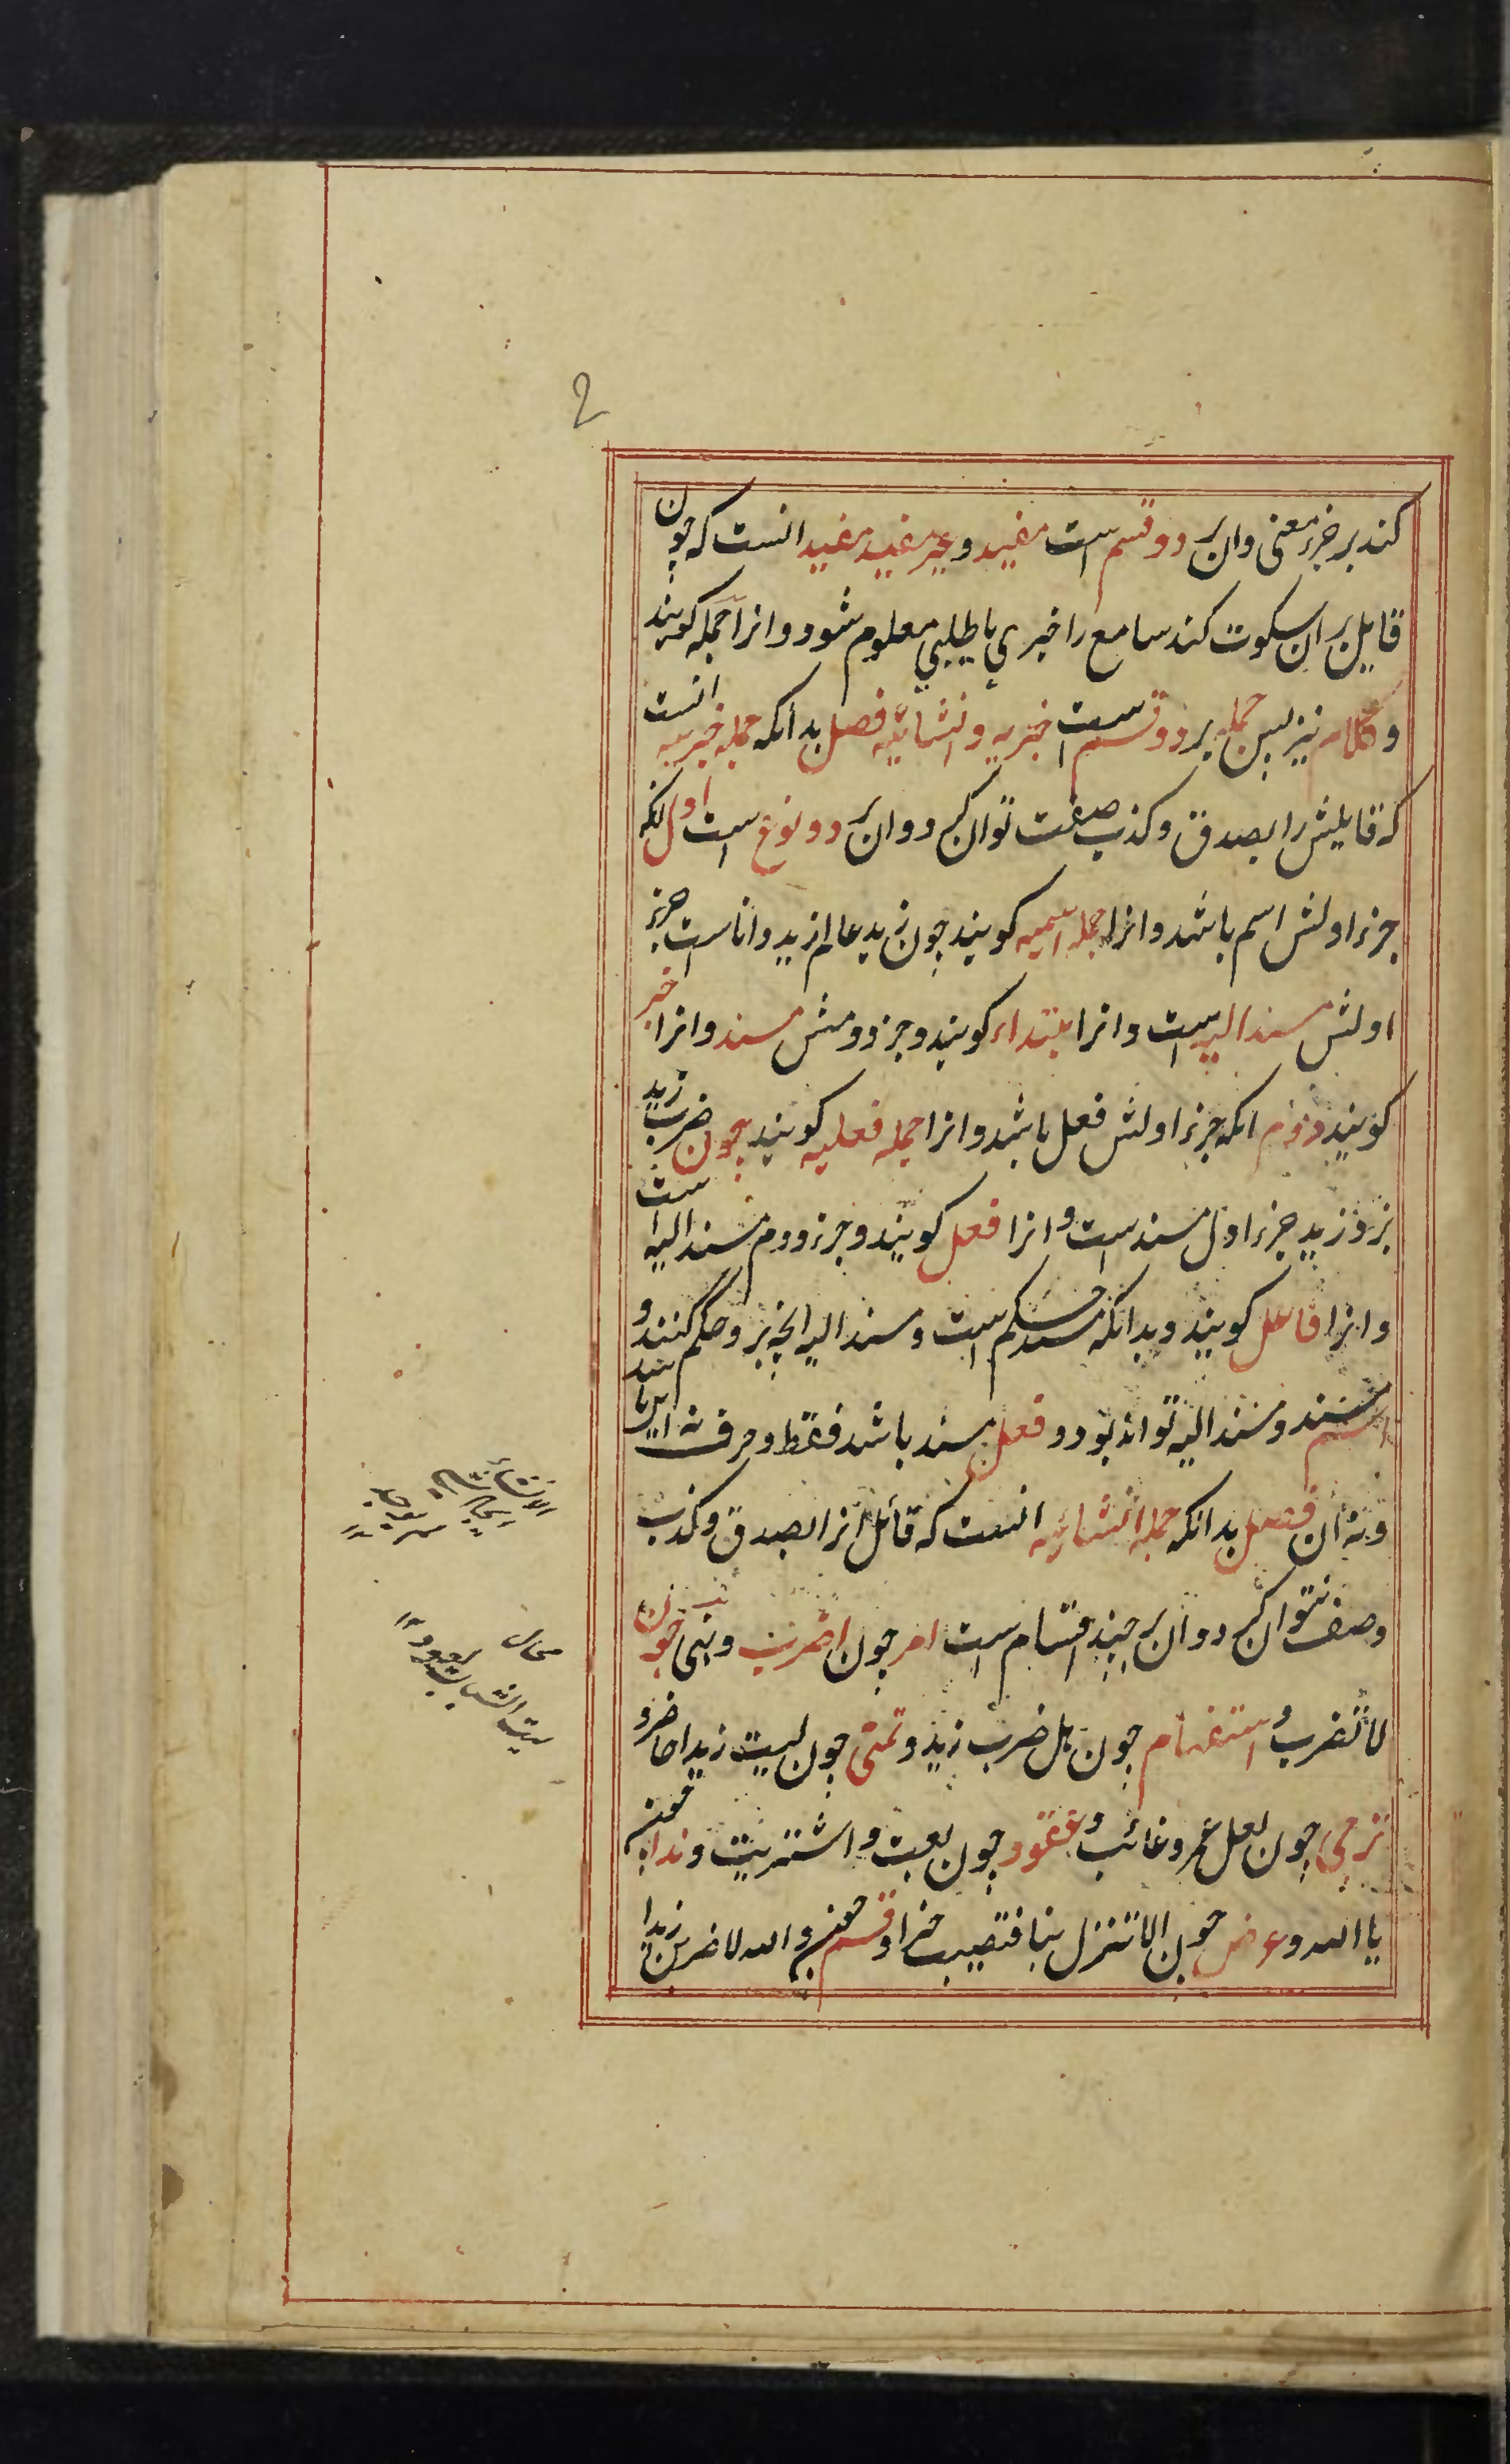 2
کند بر جزء معنی وان بر دو قسم است مفید و غیر مفید مفید انست که چون
قایل بر ان سکوت کند سامع را خبری یا طلبی معلوم شود و انرا جمله کویند
و کلام نیز پس جمله بر دو قسم است خبریه و انشائیه فصل بدانکه جمله خبریه انست
که قایلش را بصدق و کذب صفت توان کرد و ان بر دو نوع است اول انکه
جزء اولش اسم باشد و انرا جمله اسمیه کویند چون زید عالم زید دانا است جزء
اولش مسند الیه است و انرا مبتداء کویند و جزء دومش مسند و انرا خبر
کویند دوم انکه جزء اولش فعل باشد و انرا جمله فعلیه کویند چون ضرب زید
بزد زید جزء اول مسند است و انرا فعل کویند و جزء دوم مسند الیه است
و انرا فاعل کویند و بدانکه مسند حکم است و مسند الیه انچه بر و حکم کنند و
اسم مسند و مسند الیه تواند بود و فعل مسند باشد فقط و حرف نه این باشد
و نه ان فصل بدانکه جمله انشائیه انست که قائل انرا بصدق و کذب
وصف نتوان کرد و ان بر چند اقسام است امر چون اضرب و نهی چون
لا تضرب و استفهام چون هل ضرب زید و تمنی چون لیت زیدا حاضر و
ترجی چون لعل عمروغائب و عقود چون بعت و اشتریت و ندا چون
یا الله و عرض چون الا تنزل بنا فتصیب خیرا و قسم چون والله لاضربن زیدا
لیت الشباب یعود